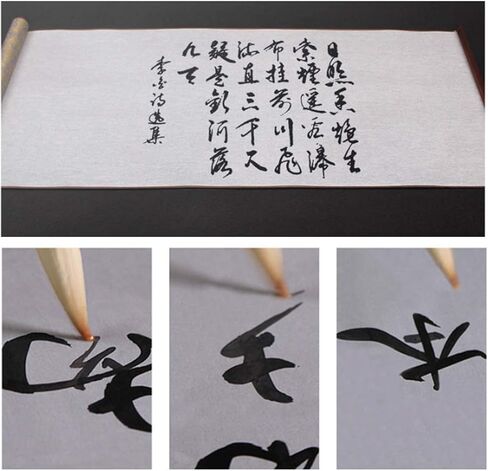 日照香炉生
紫煙遥看瀑
布挂前川飛
流直三千尺
疑是銀河落
九天
李白詩選集